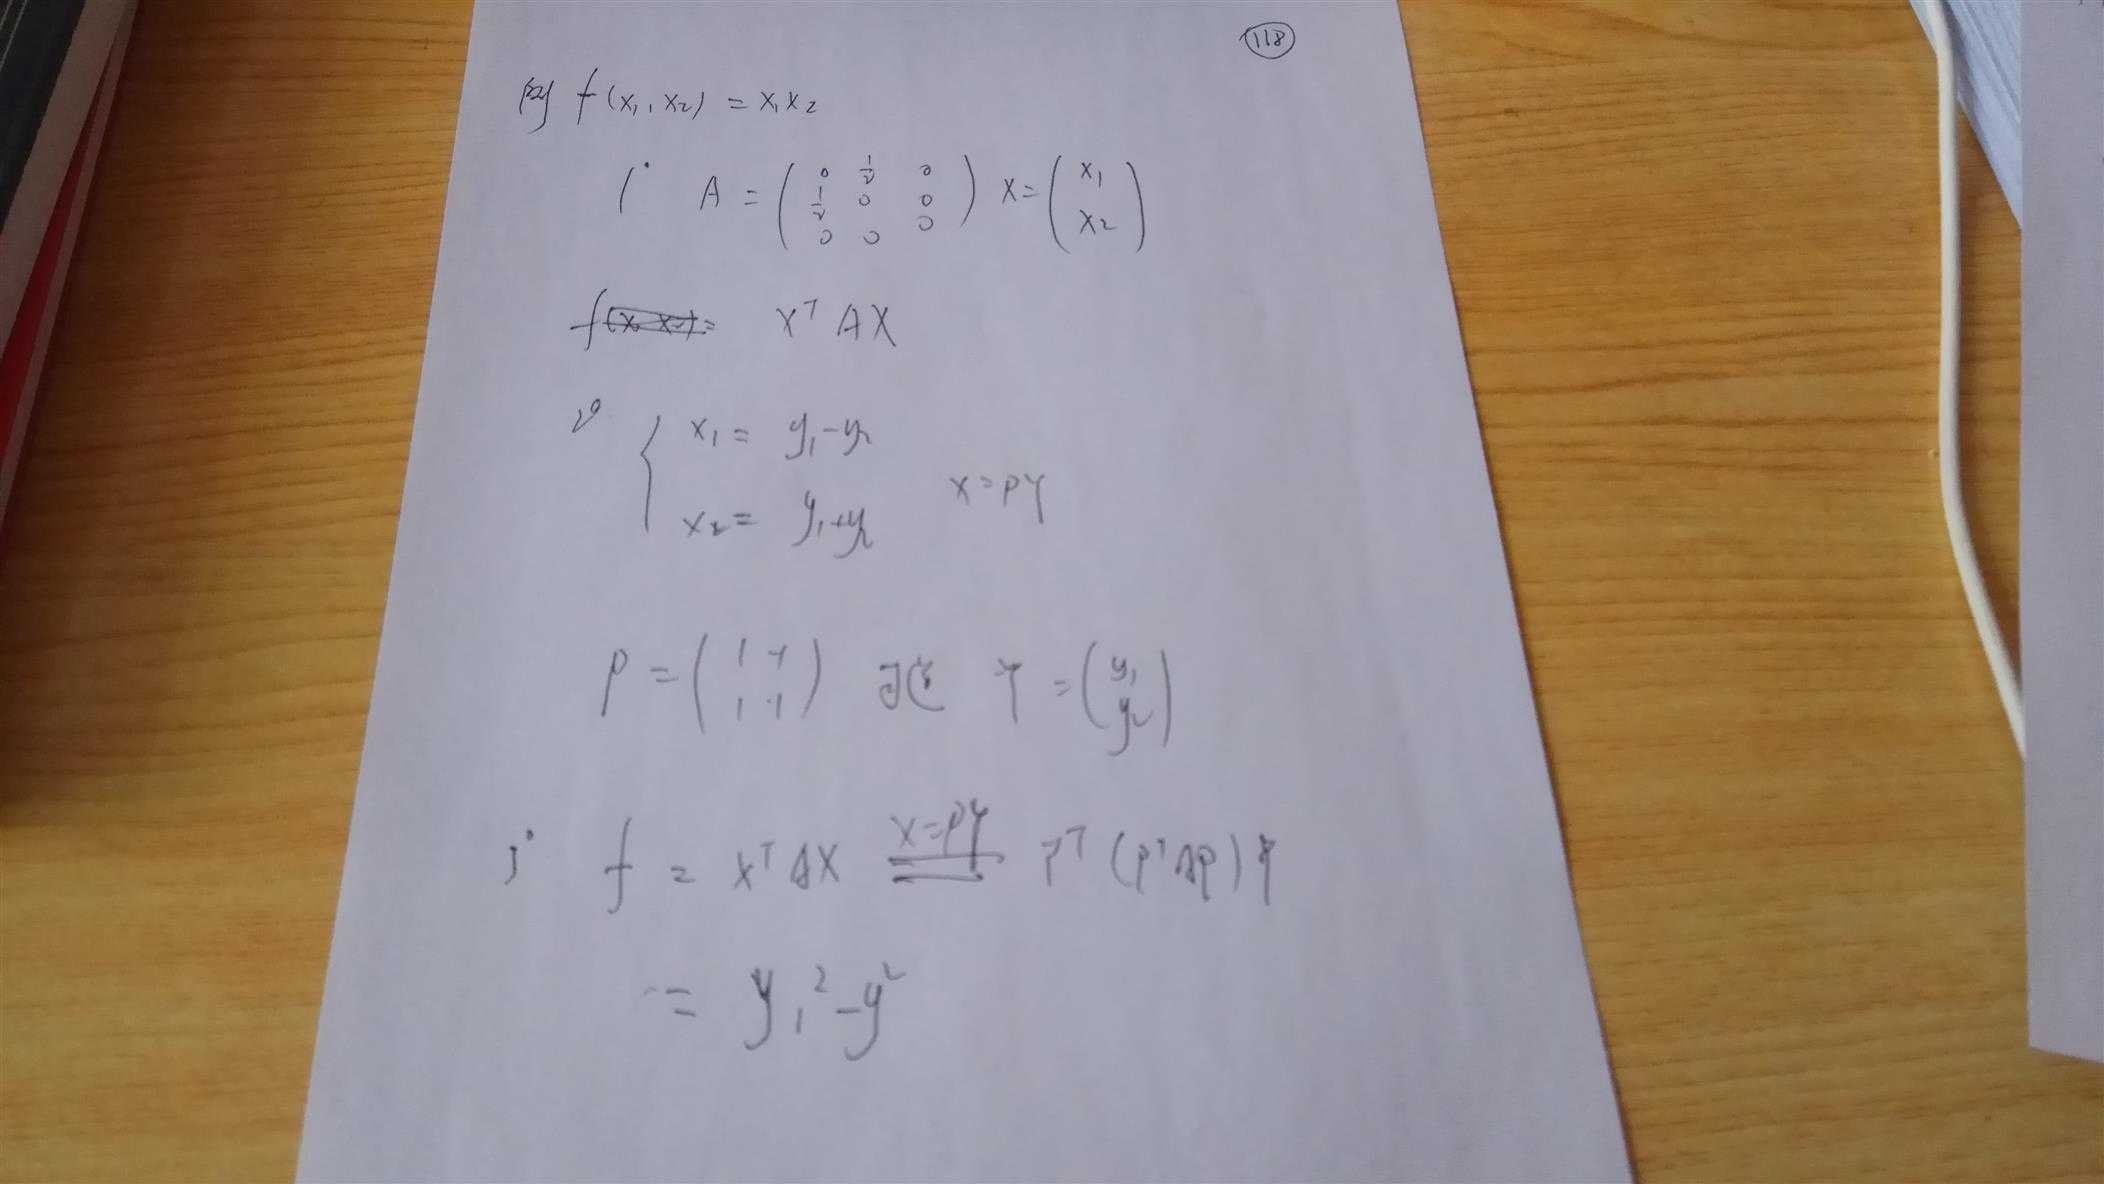 118
例 f(x₁, x₂) = x₁x₂
1° A = ( 0 1/2 0 ; 1/2 0 0 ; 0 0 0 ) X = ( x₁ ; x₂ )
f = XᵀAX
2° { x₁ = y₁-y₂
x₂ = y₁+y₂ X=PY
P = ( 1 -1 ; 1 1 ) 可逆 Y = ( y₁ ; y₂ )
3° f = XᵀAX X=PY = Yᵀ(PᵀAP)Y
= y₁² - y²